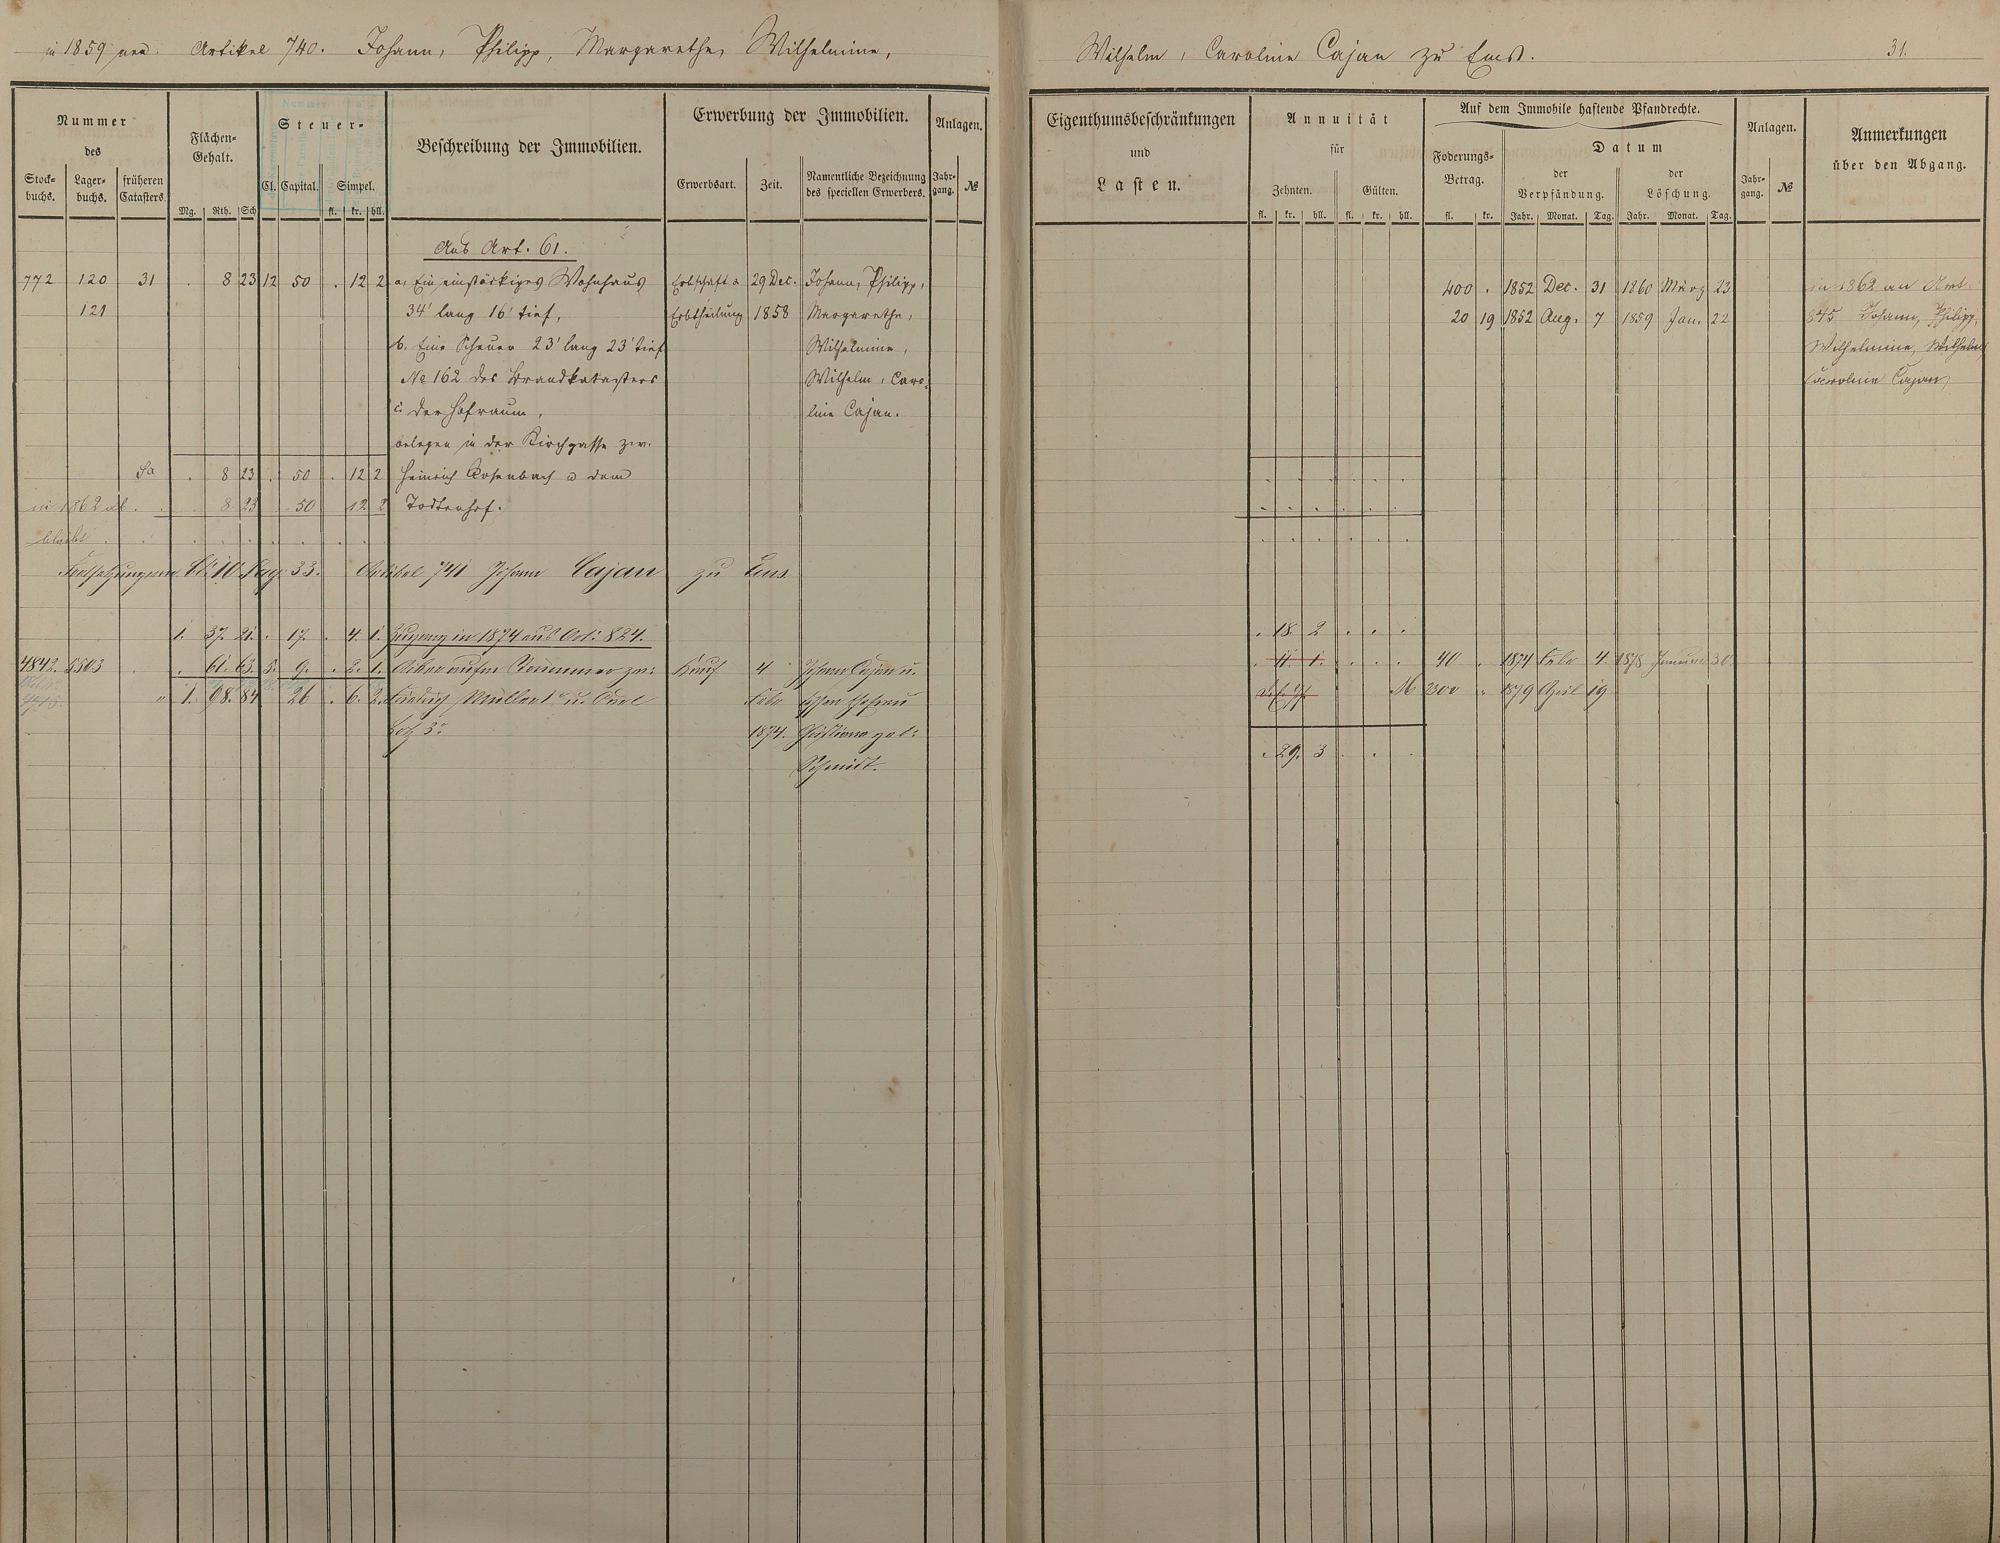 in 1859 neu. Artikel 740. Johann, Philipp, Margarethe, Wilhelmine, Wilhelm, Caroline Cajan zu Ems. 31.
Nummer des
Stock-buchs. Lager-buchs. früheren Catasters.
Flächen-Gehalt.
Mg. Rth. Sch
Steuer-
Cl. Capital. Simpel.
fl. kr. hll.
Beschreibung der Immobilien.
Erwerbung der Immobilien.
Erwerbsart. Zeit. Namentliche Bezeichnung des speciellen Erwerbers.
Anlagen.
Jahr-gang. №
Eigenthumsbeschränkungen und Lasten.
Annuität für
Zehnten. Gülten.
fl. kr. hll. fl. kr. hll.
Auf dem Immobile haftende Pfandrechte.
Foderungs-Betrag. Datum
der Verpfändung. der Löschung.
fl. kr. Jahr. Monat. Tag. Jahr. Monat. Tag.
Anlagen.
Jahr-gang. №
Anmerkungen über den Abgang.
Aus Art. 61.
772 120 31 . 8 23 12 50 . 12 2 a, Ein einstöckiges Wohnhaus Erbschaft u 29 Dec. Johann, Philipp, 400 . 1852 Dec. 31 1860 März 23 in 1862 an Art.
121 34' lang 16' tief, Erbtheilung 1858 Margarethe, 20 19 1852 Aug. 7 1859 Jan. 22 845 Johann, Philipp,
b. Eine Scheuer 23' lang 23' tief Wilhelmine, Wilhelmine, Wilhelm
№ 162 des Brandkatasters Wilhelm, Caro- Caroline Cajan
c. der Hofraum, line Cajan.
belegen in der Kirchgasse zw.
Sa . 8 23 . 50 . 12 2 Heinrich Rosenbach u dem
in 1862 ab . . 8 23 . 50 12 2 Todtenhof.
bleibt . . . . .
Fortsetzung von Bd. 10 Pag. 33. Artikel 741 Johann Cajan zu Ems
1. 37. 21. . 17. . 4. 1. Zugang in 1874 aus Art. 824. . 18. 2 . . .
4842. 6503 . . 61. 63. 3. 9. . 2. 1. Acker zw: Kauf 4 Johann Cajan u. . 11. 1. . . . 40 . 1874 Febr 4. 1878 Januar 30.
" 1. 98. 84 26 . 6. 2. Friedrich Müller 1r u. Carl Febr dessen Ehefrau M 2300 " 1879 April 19
3r 1874. Christiane geb: . 29. 3 . . .
Schmidt.